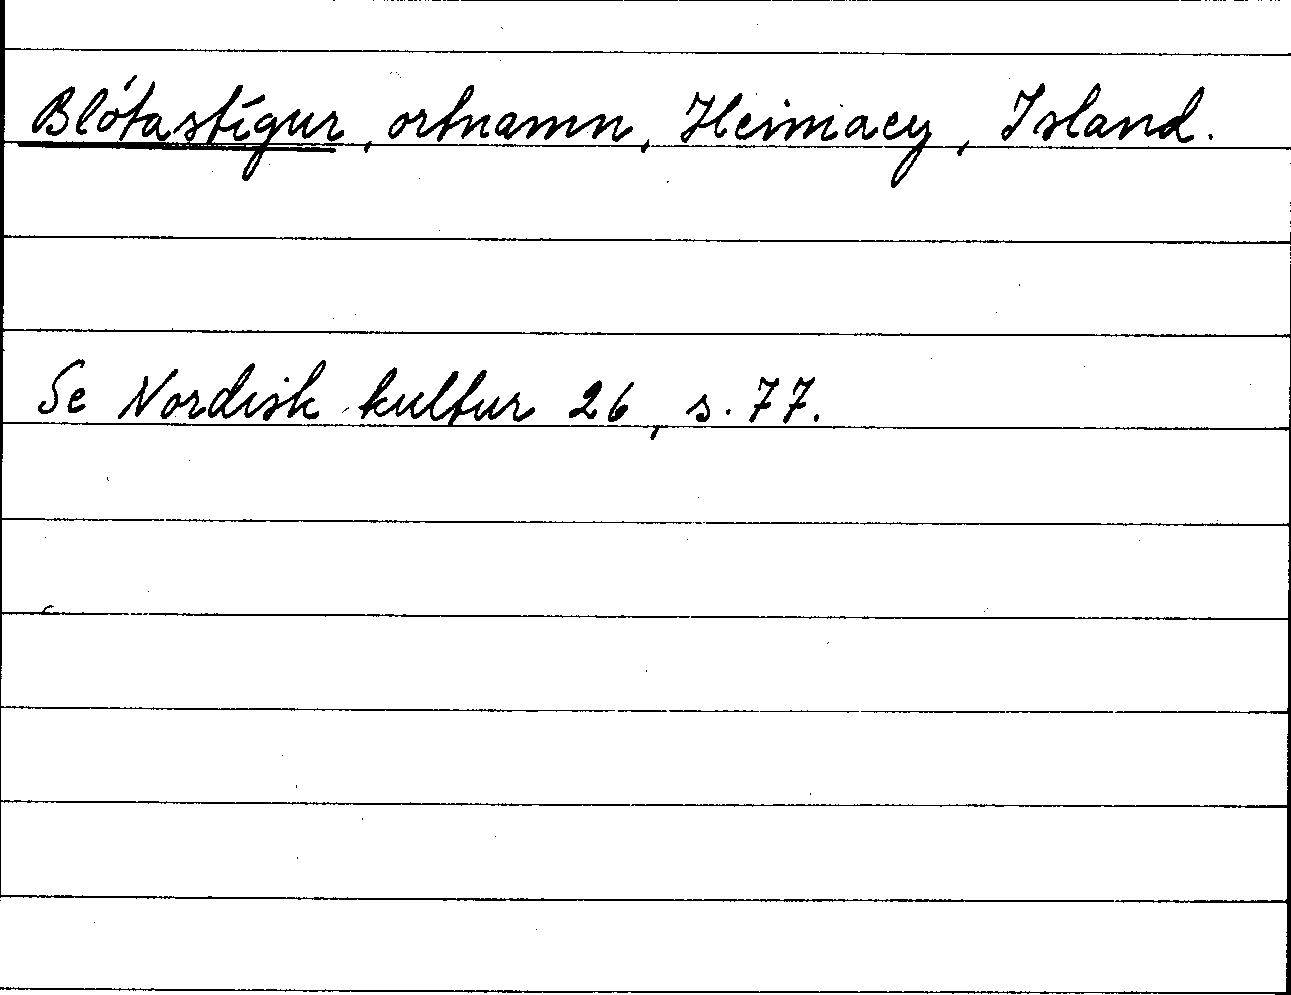 Blótastígur, ortnamn, Heimaey, Island.
Se Nordisk kultur 26, s. 77.